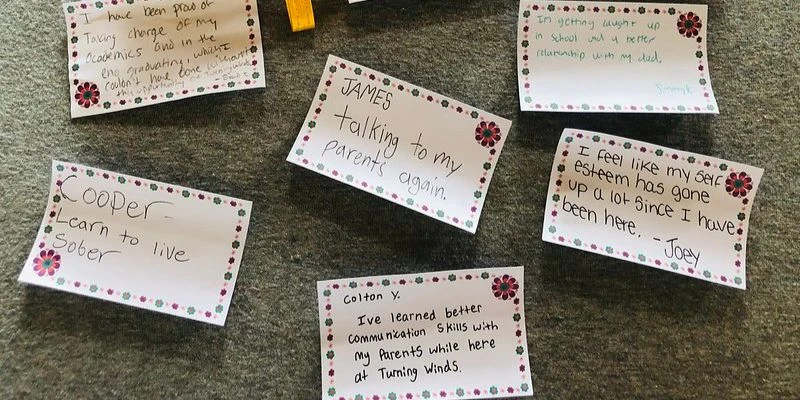 I have been proud of
Taking charge of my
academics and in the
end graduating, which I
couldn't have done without
this opportunity
Im getting caught up
in school and a better
relationship with my dad.
JAMES
talking to my
parents again.
I feel like my self
esteem has gone
up a lot since I have
been here. - Joey
Cooper-
Learn to live
Sober
Colton Y.
Ive learned better
communication skills with
my parents while here
at Turning Winds.